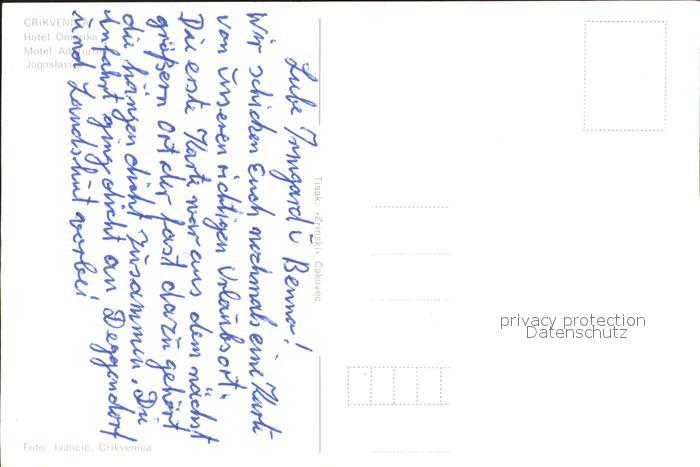 CRIKVENICA
Hotel Omorika
Motel Ad Turres
Jugoslavija
Liebe Irmgard u Benno!
Wir schicken Euch nochmals eine Karte
von unseren richtigen Urlaubsort.
Die erste Karte war aus dem nächst
größern Ort der fast dazu gehört
die hängen dicht zusammen. Die
Anfahrt ging dicht an Deggendorf
und Landshut vorbei!
Tisak: »Zrinski« Čakovec
privacy protection
Datenschutz
Foto: Ivančić, Crikvenica